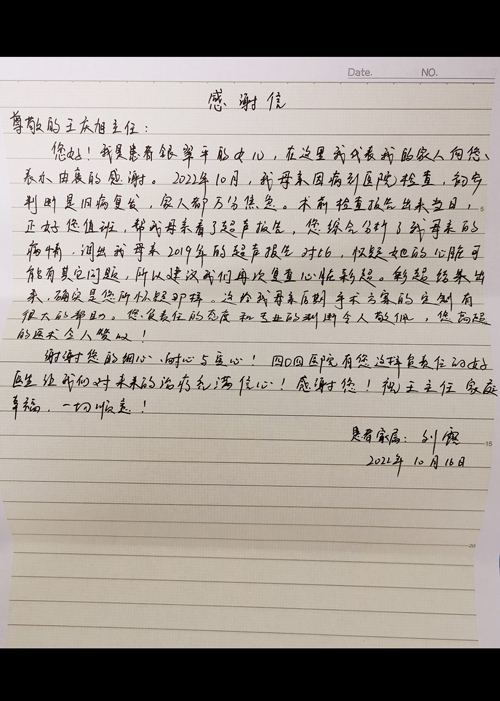 Date. NO.
感谢信
尊敬的王庆旭主任：
您好！我是患者银翠平的女儿，在这里我代表我的家人向您
表示由衷的感谢。2022年10月，我母亲因病到医院检查，初步
判断是旧病复发，家人都万分焦急。术前检查报告出来当日，
正好您值班，帮我母亲看了超声报告，您综合分析了我母亲的
病情，调出我母亲2019年的超声报告对比，怀疑她的心脏可
能有其它问题，所以建议我们再次复查心脏彩超。彩超结果出
来，确实是您所怀疑那样。这给我母亲后期手术方案的定制有
很大的帮助。您负责任的态度和专业的判断令人敬佩，您高超
的医术令人赞叹！
谢谢您的细心、耐心与爱心！四〇四医院有您这样负责任的好
医生让我们对未来的治疗充满信心！感谢您！祝王主任家庭
幸福，一切顺意！
患者家属：刘
15
2022年10月16日
20